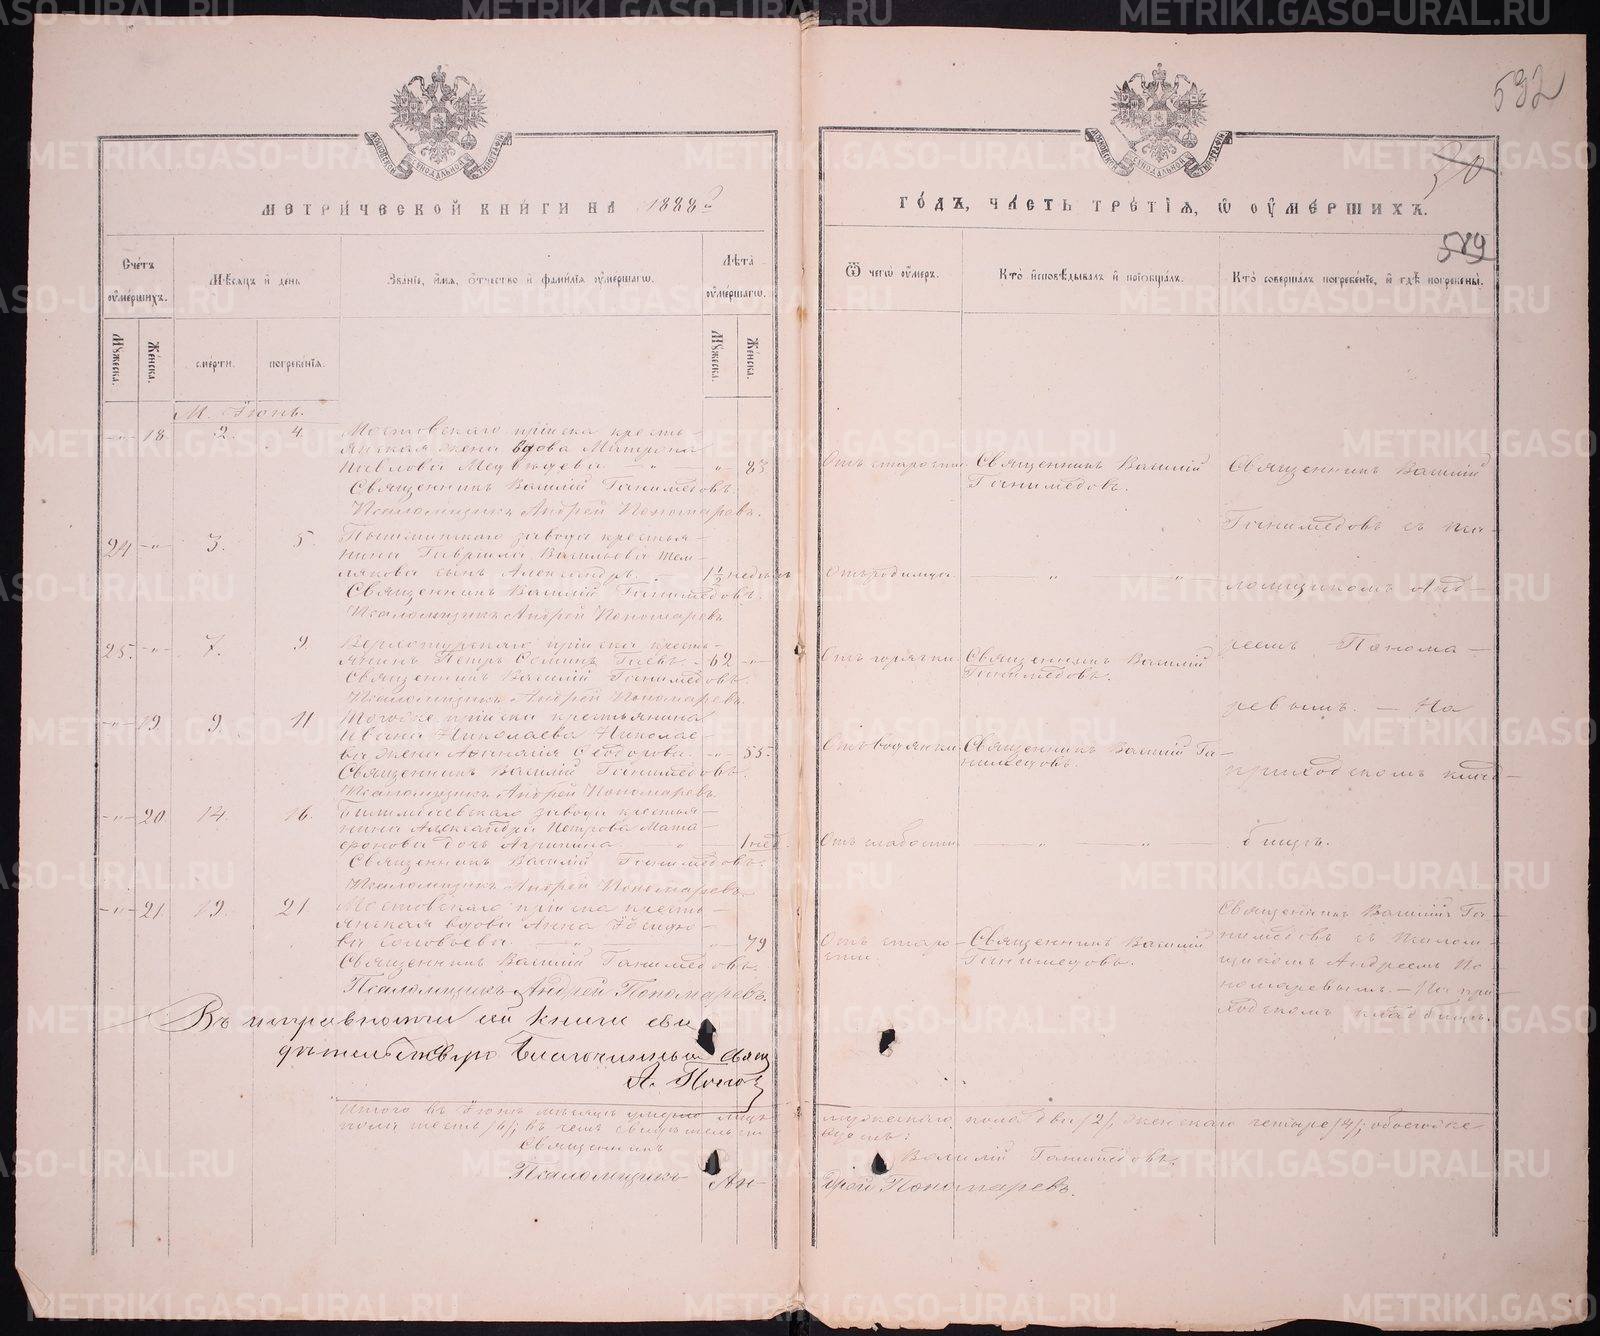 592
30
589
МЕТРИ́ЧЕСКОЙ КНИ́ГИ НА 1888й
ГО́ДЪ, ЧА́СТЬ ТРЕ́ТІѦ, Ѡ ОУ҆МЕ́РШИХЪ.
Сче́тъ оу҆ме́ршихъ.
Мѣ́сѧцъ и҆ де́нь
Зва́нїе, и҆́мѧ, ѻ҆́тчество и҆ фами́лїа оу҆ме́ршагѡ.
Лѣ́та оу҆ме́ршагѡ.
Ѿ чегѡ̀ оу҆́меръ.
Кто̀ и҆сповѣ́дывалъ и҆ прїѡбща́лъ.
Кто̀ соверша́лъ погребе́нїе, и҆ гдѣ̀ погребены̀.
Мꙋ́жеска.
Же́нска.
сме́рти.
погребе́нїѧ.
Мꙋ́жеска.
Же́нска.
М. Іюнь.
-„- 18. 2. 4. Мостовскаго прииска кресть-
янская жена вдова Матрона
Павлова Медведева. „ -„- 83
Священникъ Василій Ганимедовъ.
Псаломщикъ Андрей Пономаревъ.
Отъ старости.
Священникъ Василій
Ганимедовъ.
Священникъ Василій
Ганимедовъ съ пса-
ломщикомъ Анд-
реемъ Понома-
ревымъ. — На
приходскомъ клад-
бищѣ.
24 -„- 3. 5. Пышминскаго завода крестья-
нина Гавріила Васильева
сынъ Александръ. 1½ недѣль
Священникъ Василій Ганимедовъ.
Псаломщикъ Андрей Пономаревъ.
Отъ родимца. „ „
25. -„- 7. 9. Верхотурскаго прииска кресть-
янинъ Петръ 62 -„-
Священникъ Василій Ганимедовъ.
Псаломщикъ Андрей Пономаревъ.
Отъ горячки.
Священникъ Василій
Ганимедовъ.
-„- 19 9. 11 Тогоже прииска крестьянина
Ивана Николаева Николае-
ва жена Афанасія Ѳеодорова. -„- 55.
Священникъ Василій Ганимедовъ.
Псаломщикъ Андрей Пономаревъ.
Отъ водянки.
Священникъ Василій Га-
нимедовъ.
-„- 20. 14. 16. Билимбаевскаго завода крестья-
нина Александра Петрова Мата-
фонова дочь Агрипина. „ 1 нед.
Священникъ Василій Ганимедовъ.
Псаломщикъ Андрей Пономаревъ.
Отъ слабости. „ „
-„- 21. 19. 21. Мостовскаго прииска кресть-
янская вдова Анна Іосифо-
ва Соловьева. -„- 79
Священникъ Василій Ганимедовъ.
Псаломщикъ Андрей Пономаревъ.
Отъ старо-
сти.
Священникъ Василій
Ганимедовъ.
Священникъ Василій Га-
нимедовъ съ псалом-
щикомъ Андреемъ По-
номаревымъ. — На при-
ходскомъ кладбищѣ.
Въ исправности сей книги сви
дѣтельствую Благочинный Свящ
А. Попов
Итого въ Іюнѣ мѣсяцѣ умерло лицъ мужескаго пола два /2/, женскаго четыре /4/; обоегоже
пола шесть /6/; въ чемъ свидѣтельству-
Священникъ Василій Ганимедовъ.
Псаломщикъ Ан- дрей Пономаревъ.